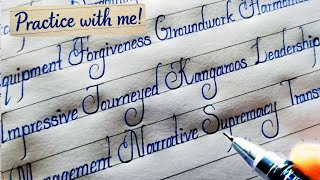 Practice with me!
Equipment Forgiveness Groundwork Harmonious
Impressive Journeyed Kangaroos Leadership
Management Narrative Supremacy Trans